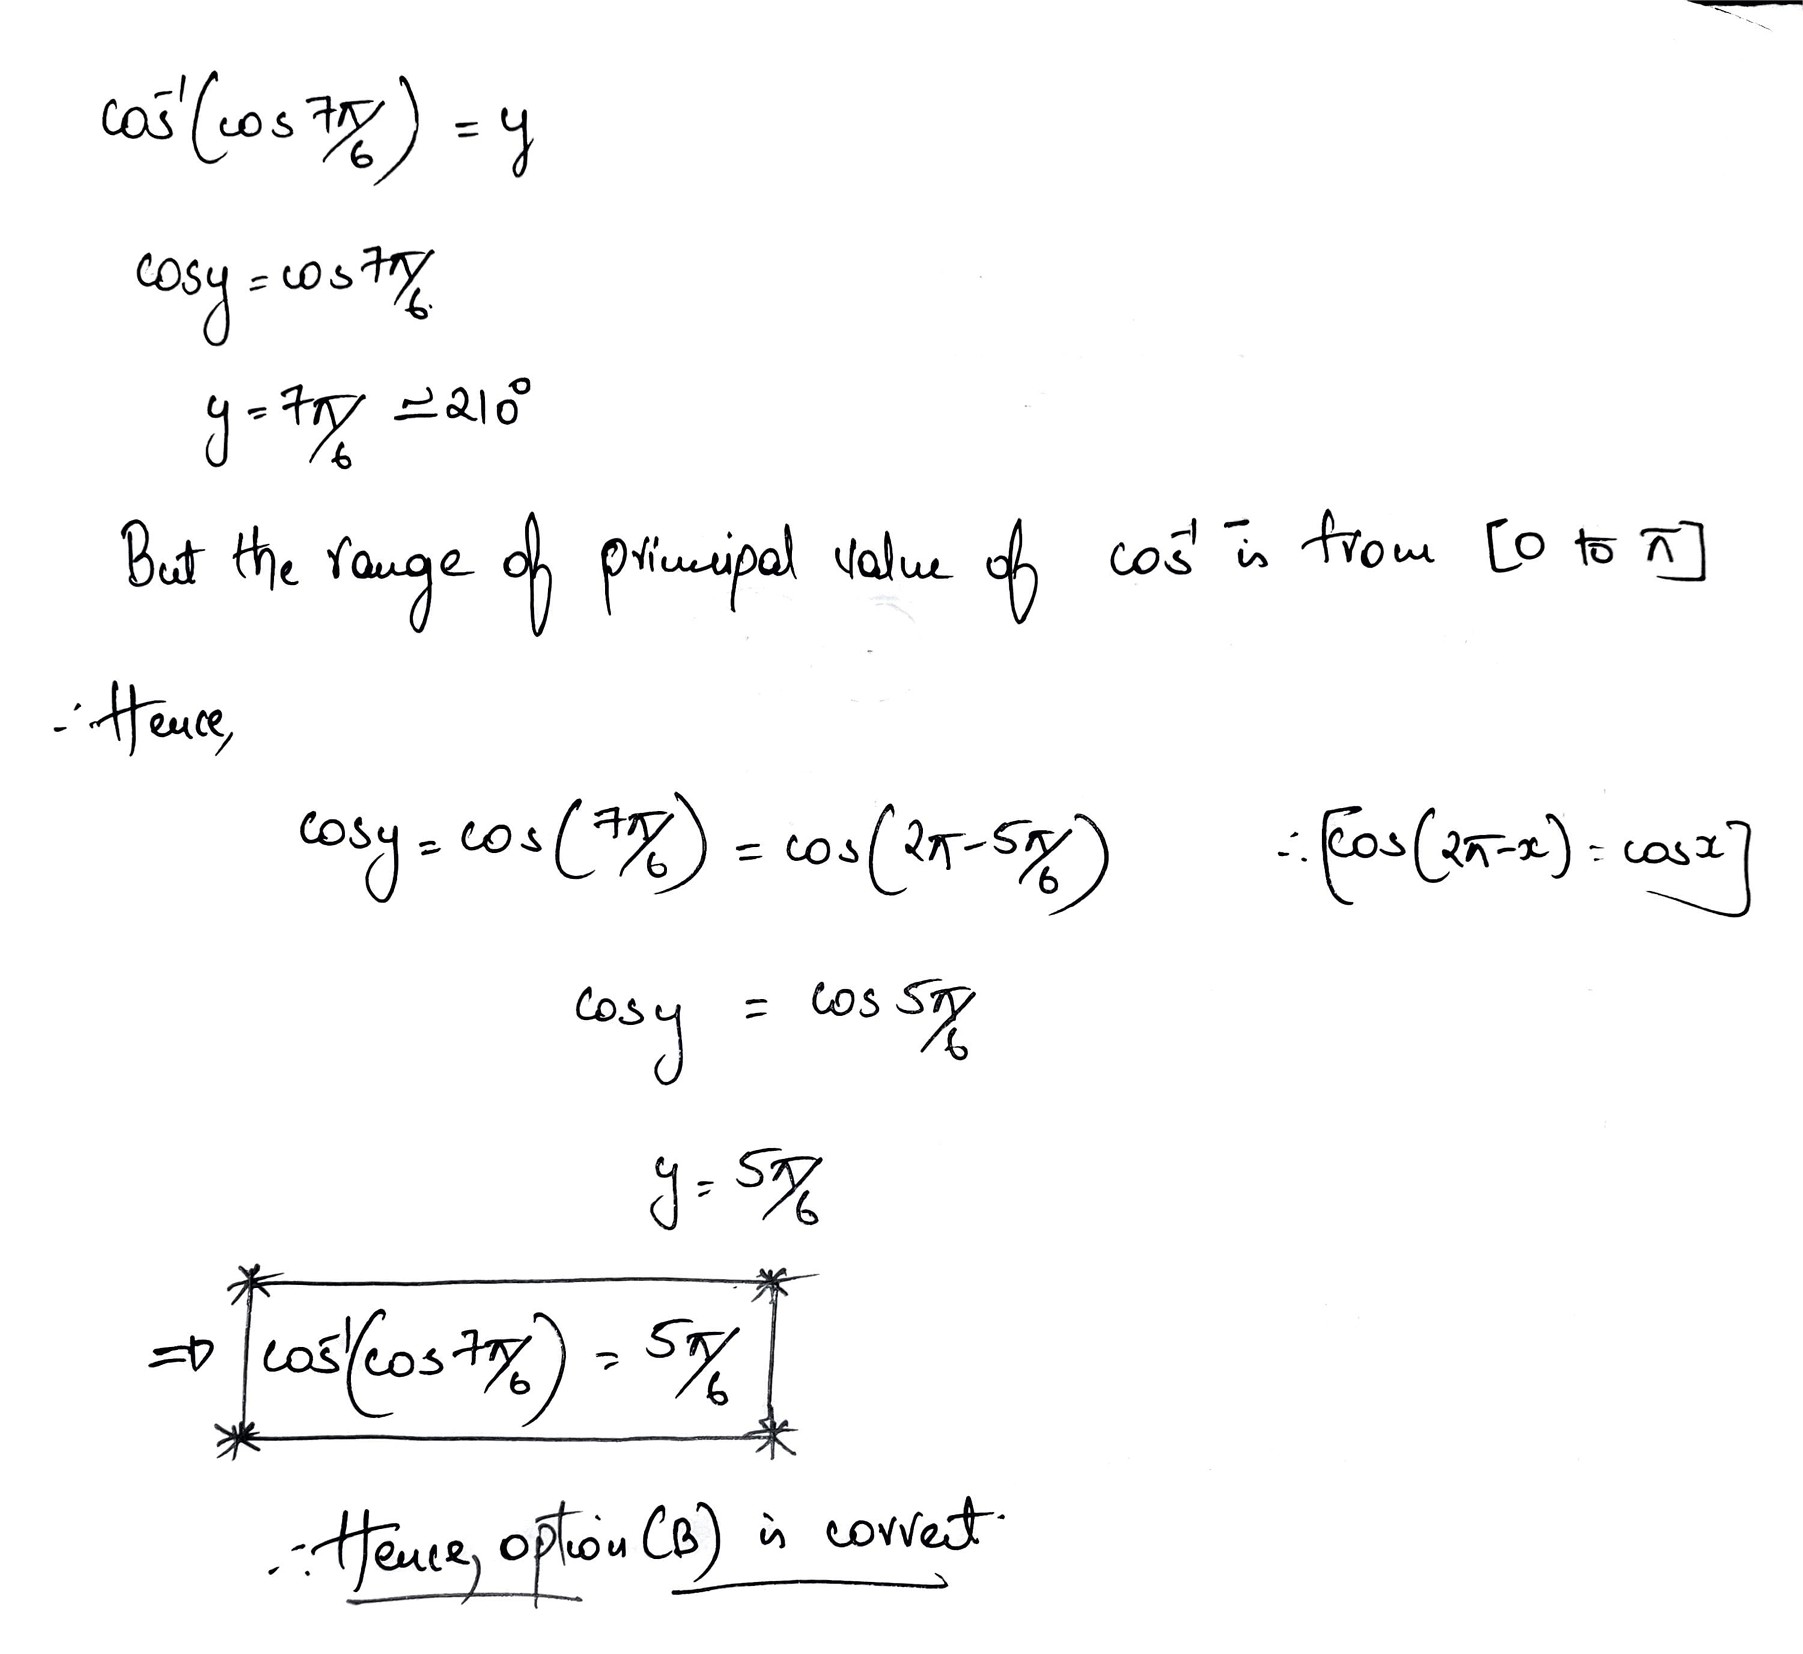 cos⁻¹(cos 7π/6) = y
cosy = cos 7π/6.
y = 7π/6 ≃ 210°
But the range of principal value of cos⁻¹ is from [0 to π]
∴ Hence,
cosy = cos(7π/6) = cos(2π-5π/6) ∴ [cos(2π-x) = cosx]
cosy = cos 5π/6
y = 5π/6
⇒ cos⁻¹(cos 7π/6) = 5π/6
∴ Hence, option (B) is correct.